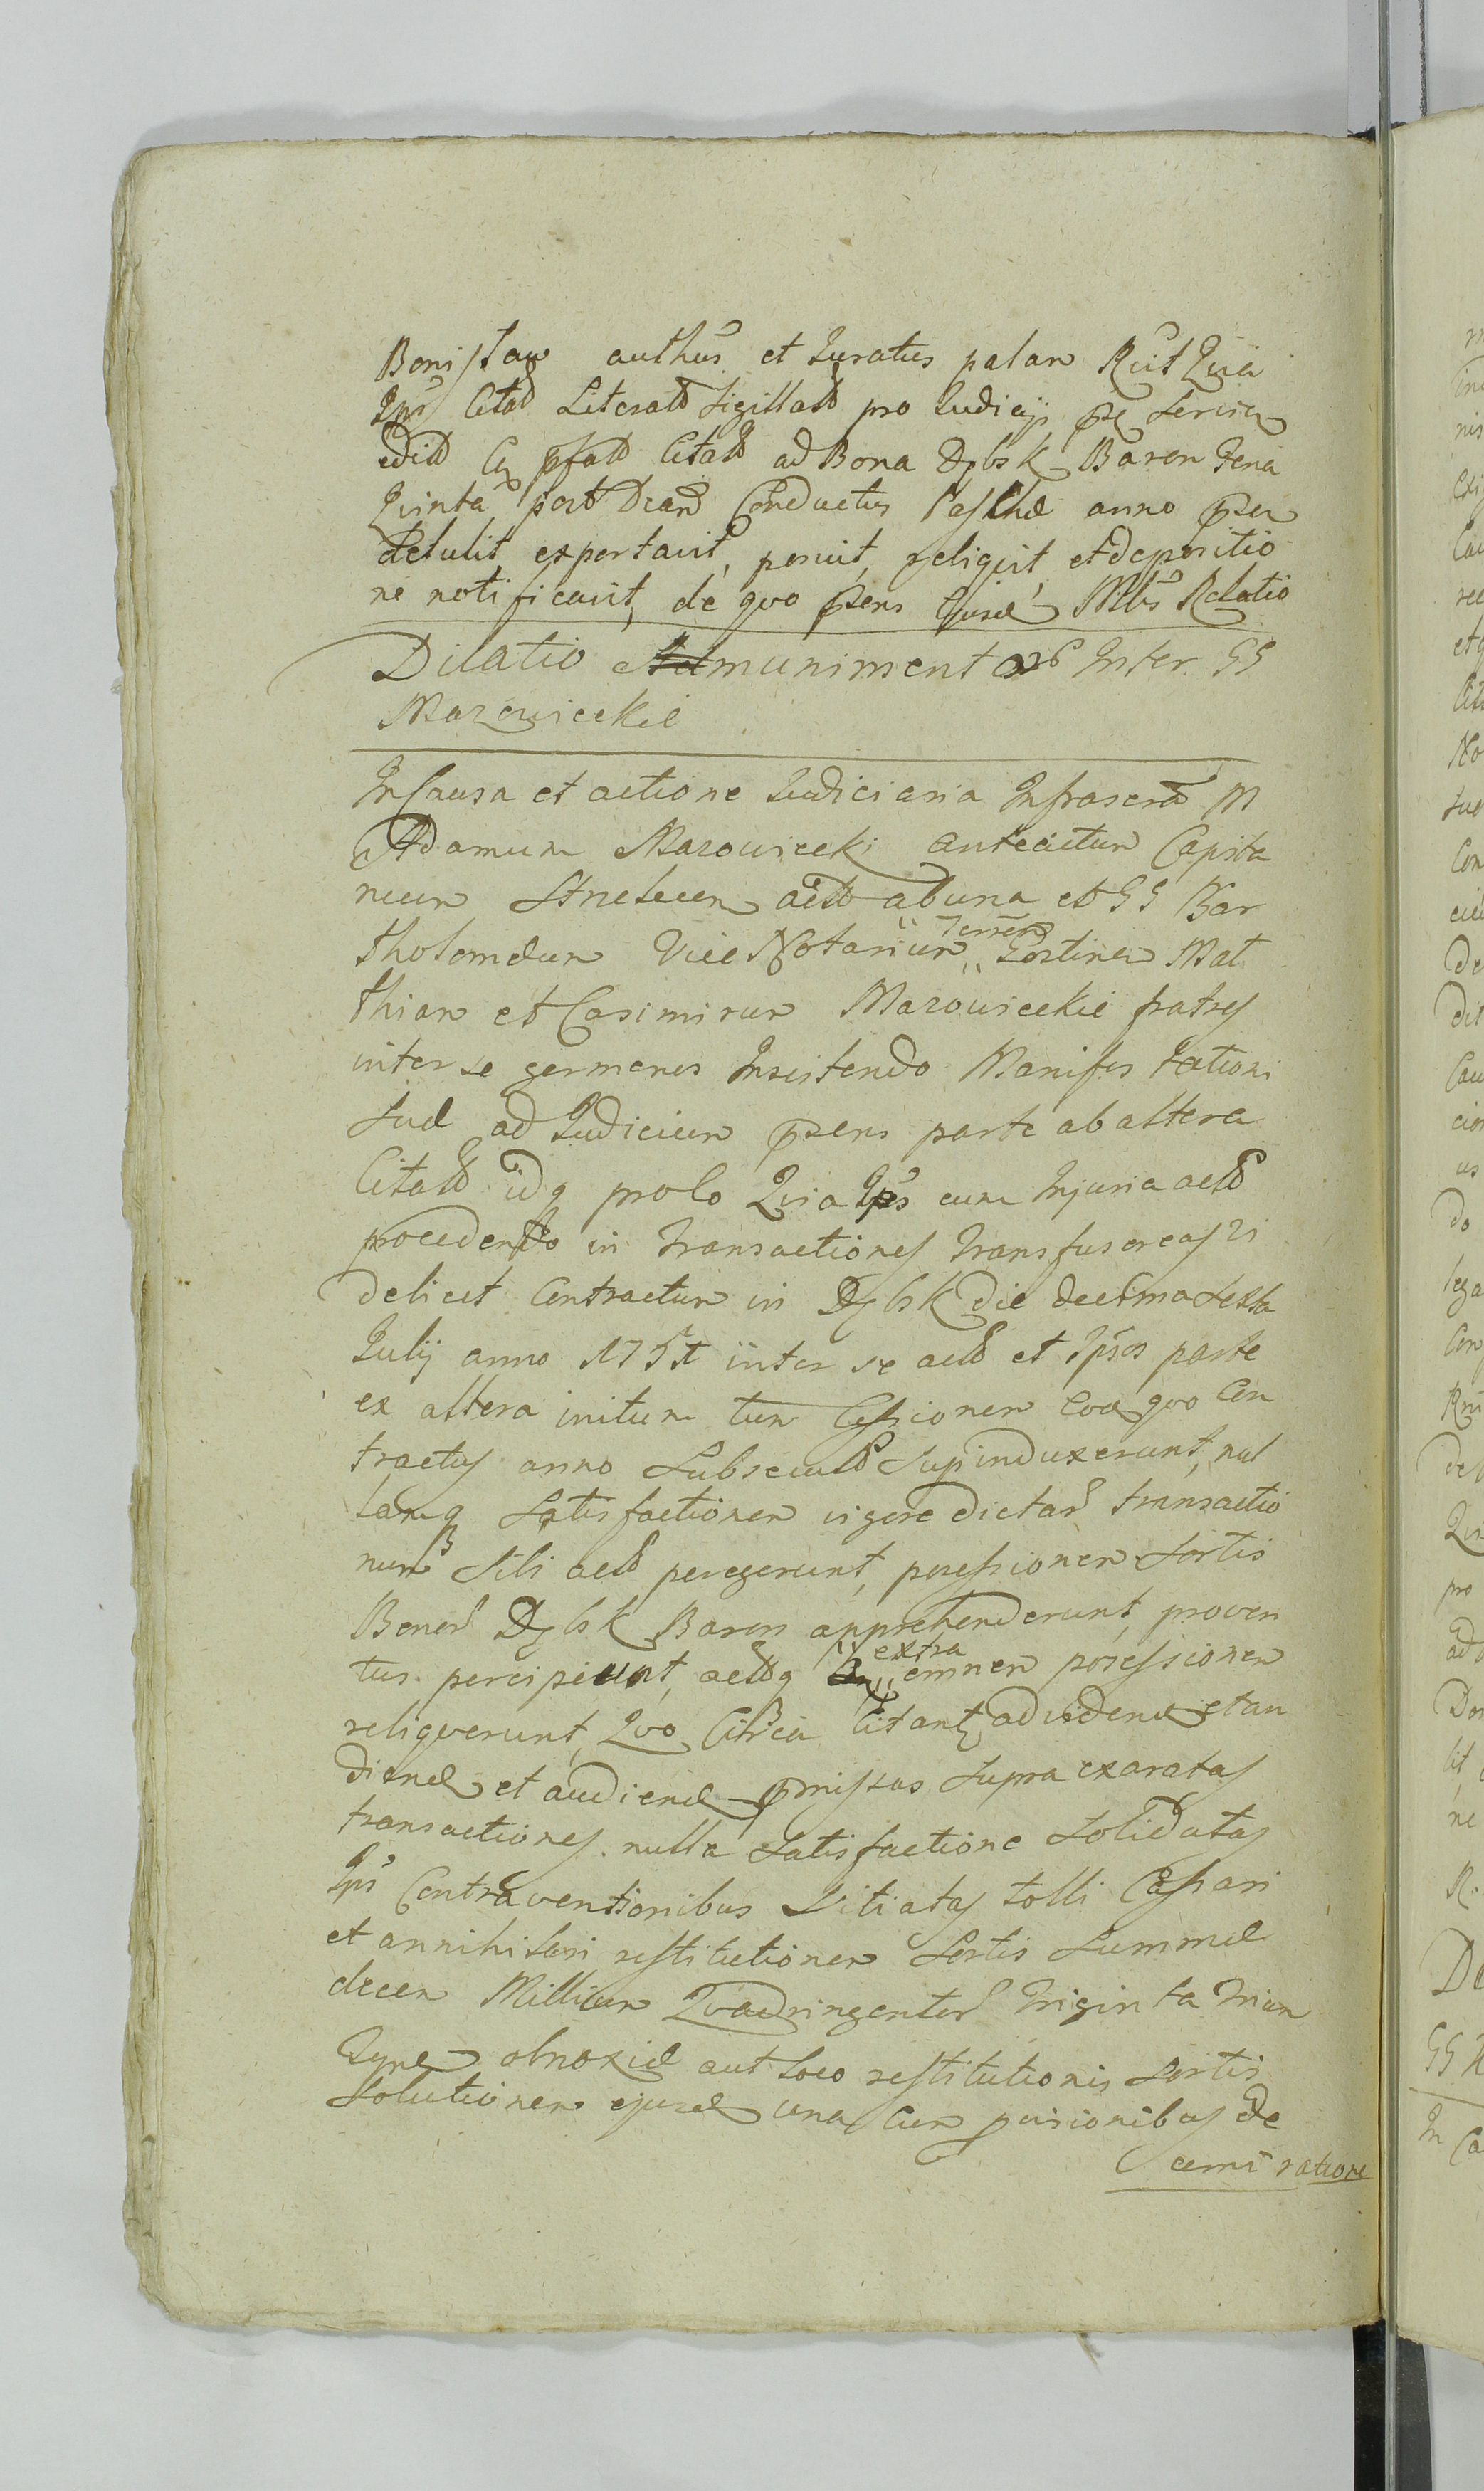 Bonistaw authus et Juratus palam Rcit Quia
Ips Citaō Literatō sigillatō pro Judicijs psę
edidō Cą pfatō Citatō ad Bona Dębsk Baren Feria
Quinta post Conductus Paschæ anno psen
detulit, exportavit, posuit, reliquit, et depositio
ne notificavit, de quo psens Ejusd Mtis Relatio
Dilatio munimentor Inter GG
Mazowieckie
In Causa et actione Judiciaria Infrascrā M
Adamum Mazowiecki antecitum Capita
neum actō ab una et GG Bar
tholomæum Vice Notarium Terren Gostinen Mat
thiam et Casimirum Mazowieckie fratres
inter se germanos Insistendo Manifestationi
suæ ad Judicium psens parte ab altera
Citatō idq prolo Quia Ips cum Injuria actō
procedendo in transactiones transfusorias vi
delicet Contractum in Dębsk die decima sexta
Julij anno 1751 inter se actō et Ipsos parte
ex altera initum tum Cessionem Eoq quo Con
tractus anno Subsecutō supinduxerunt, nul
lamq Satisfactionem vigore dictar transactio
num Sibi actō peregerunt, possessionem Sortis
Bonor Dębsk Baren apprehenderunt, proven
tus percipiunt, actōq extra omnem possessionem
reliquerunt, Quo Circa Citant ad videnę et au
dienę et audienę pmissas supra exaratas
transactiones nulla Satisfactione Solidatas
Ips Contraventionibus Vitiatas tolli Cassari
et annihilari restitutionem Sortis Summæ
decem Millium Quadringentor triginta trium
obnoxiæ aut loco restitutionis Sortis
Solutionem ejusd una cum provisionibus de
cemi ratione